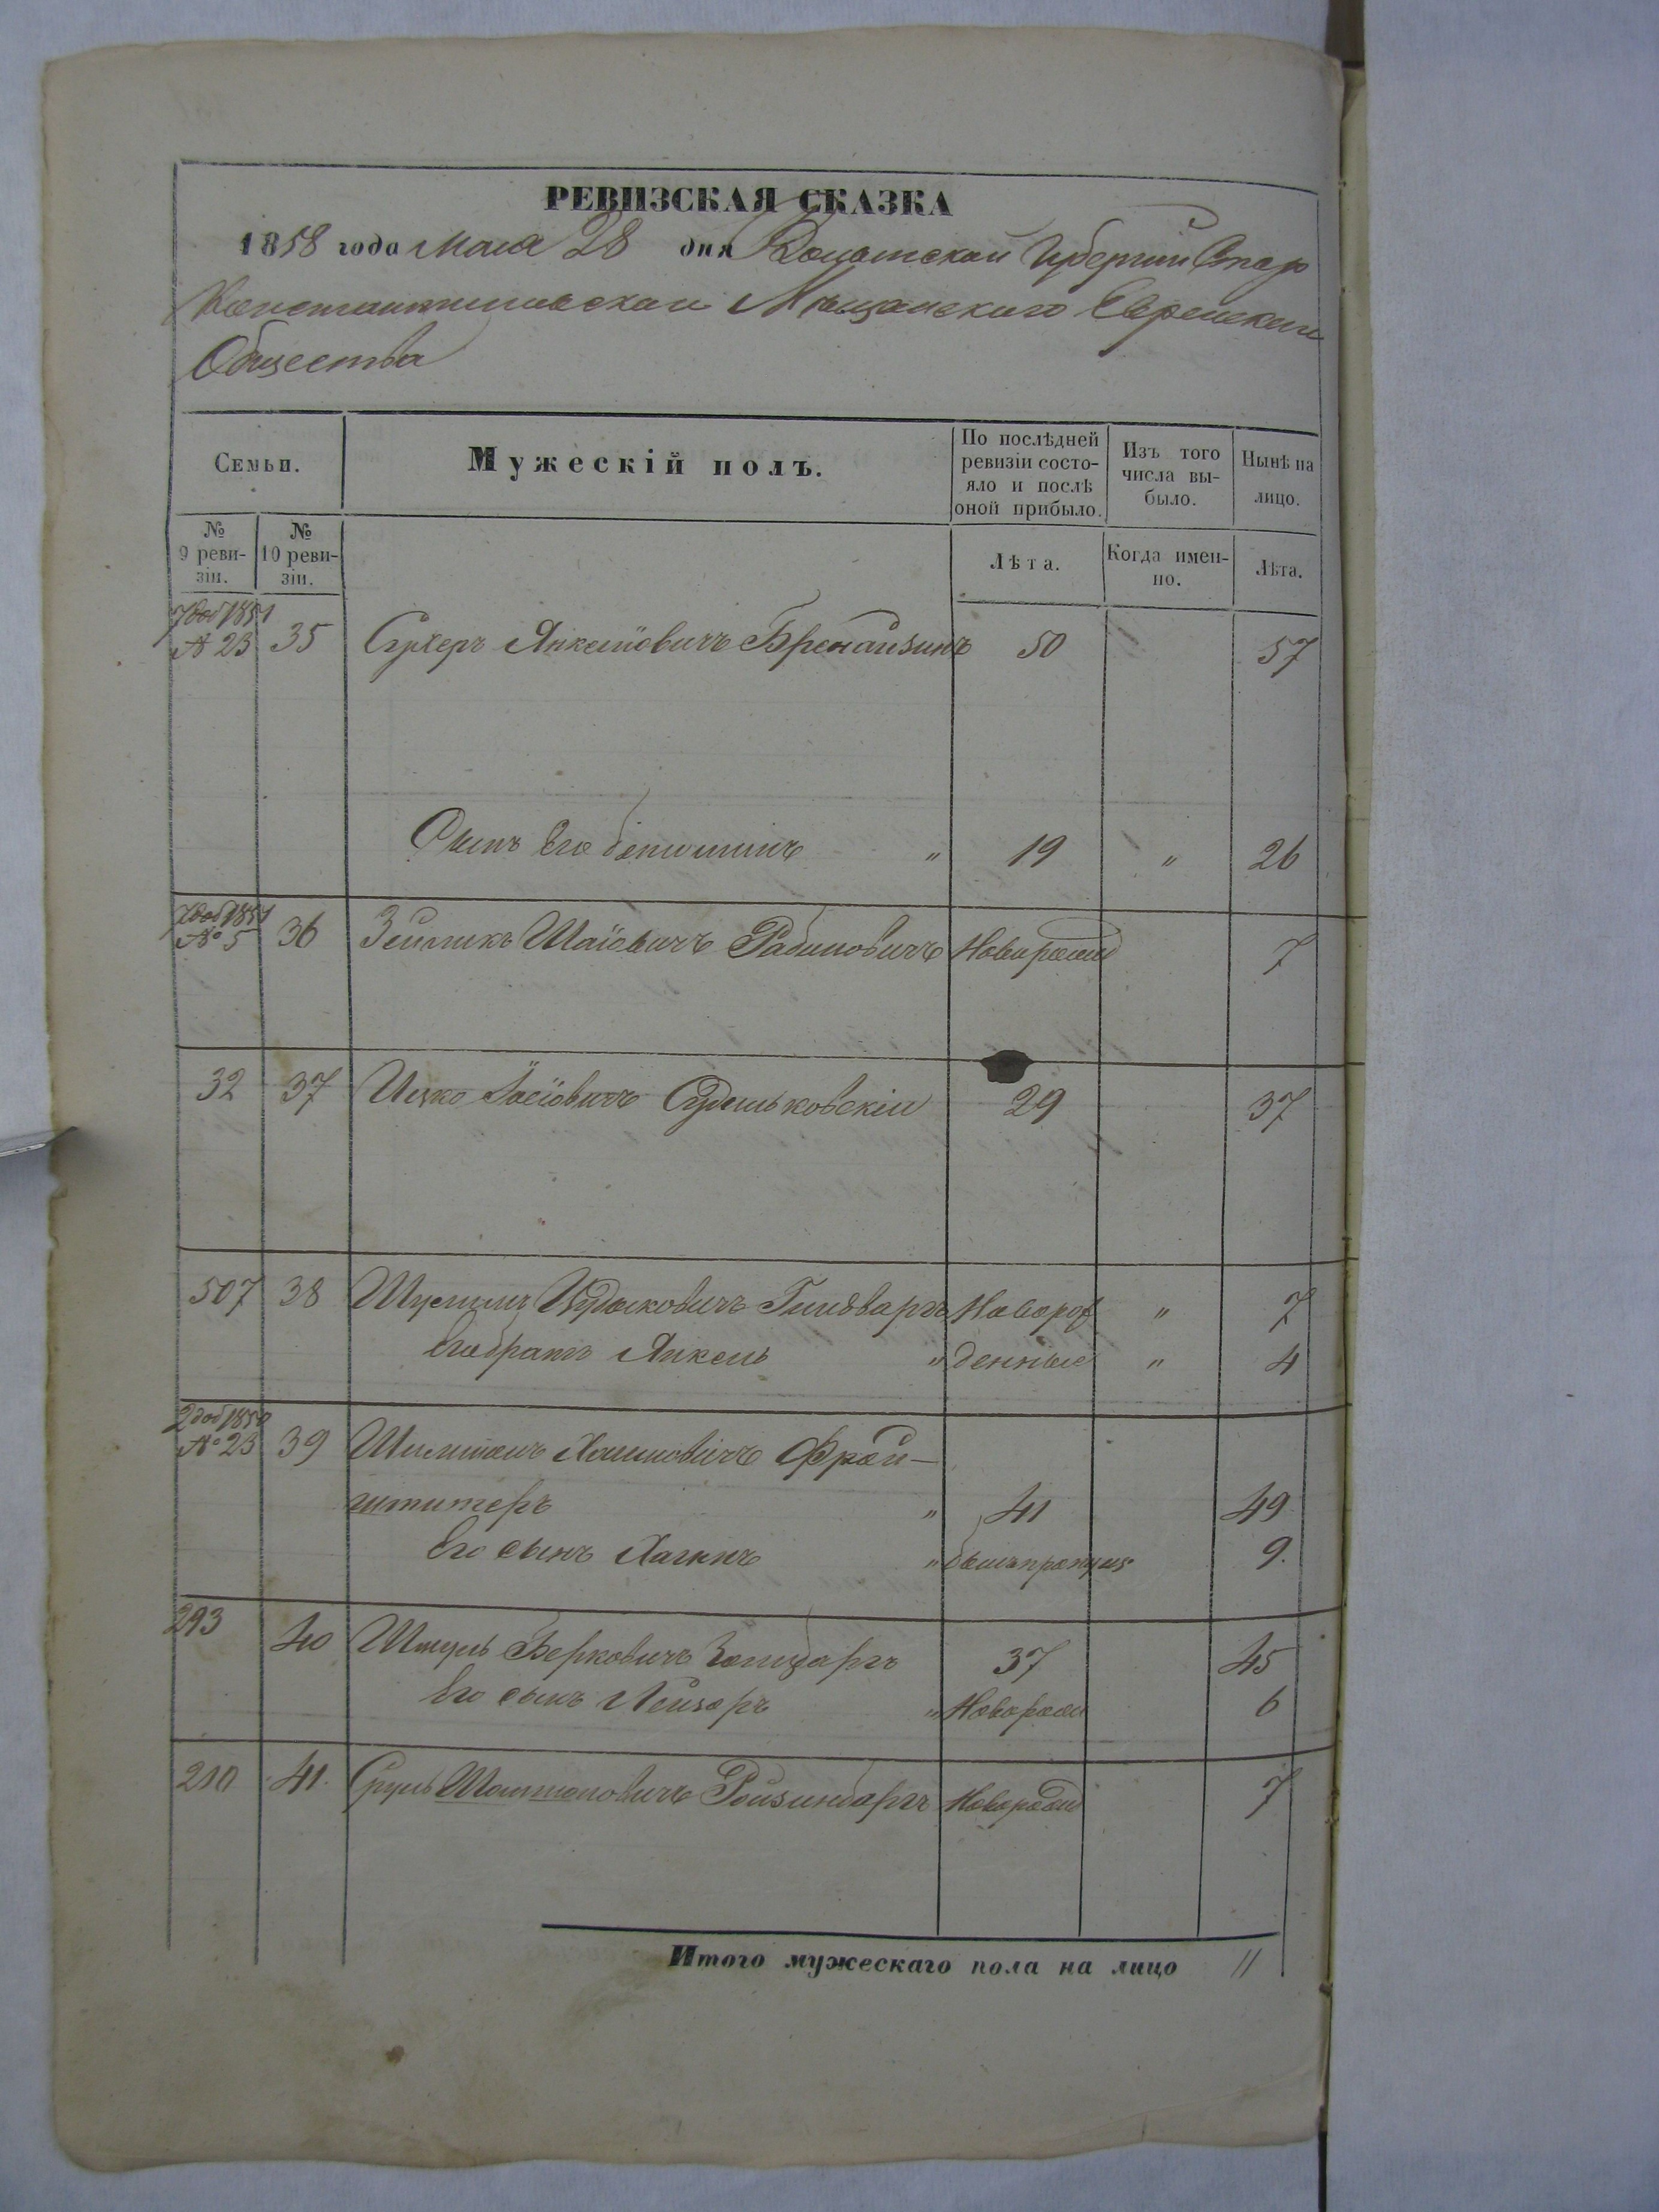 РЕВИЗСКАЯ СКАЗКА
1858 года Мая 28 дня Волынской Губерніи Старо
Константиновскаго Мѣщанскаго Еврейскаго
Общества
Семьи.
Мужескій полъ.
По послѣдней ревизіи состо-яло и послѣ оной прибыло.
Изъ того числа вы-было.
Нынѣ на лицо.
№ 9 реви-зіи.
№ 10 реви-зіи.
Лѣта.
Когда имен-но.
Лѣта.
7 доб 1851 № 23 35 Сухеръ Янкелiовичъ 50 57
Сынъ Его Беньюминъ " 19 " 26
7 доб 1851 № 5 36 Зейликъ Шаiовичъ Рабиновичъ Новорожд 7
32 37 Ицко Iосiовичъ Судильковскiй 29 37
507 38 Шулимъ Гинзбаргъ Новорож " 7
Его братъ Янкель " денные " 4
2 доб 1850 № 23 39 Хаимовичъ Фрай-
штитеръ " 41 49
Его сынъ Хаскель " былъ пропущ 9.
293 40 Шмуль Берковичъ 37 45
Его сынъ Лейзоръ " Новорожд 6
210 41. Сруль Ройзинбаргъ Новорожд 7
Итого мужескаго пола на лицо 11